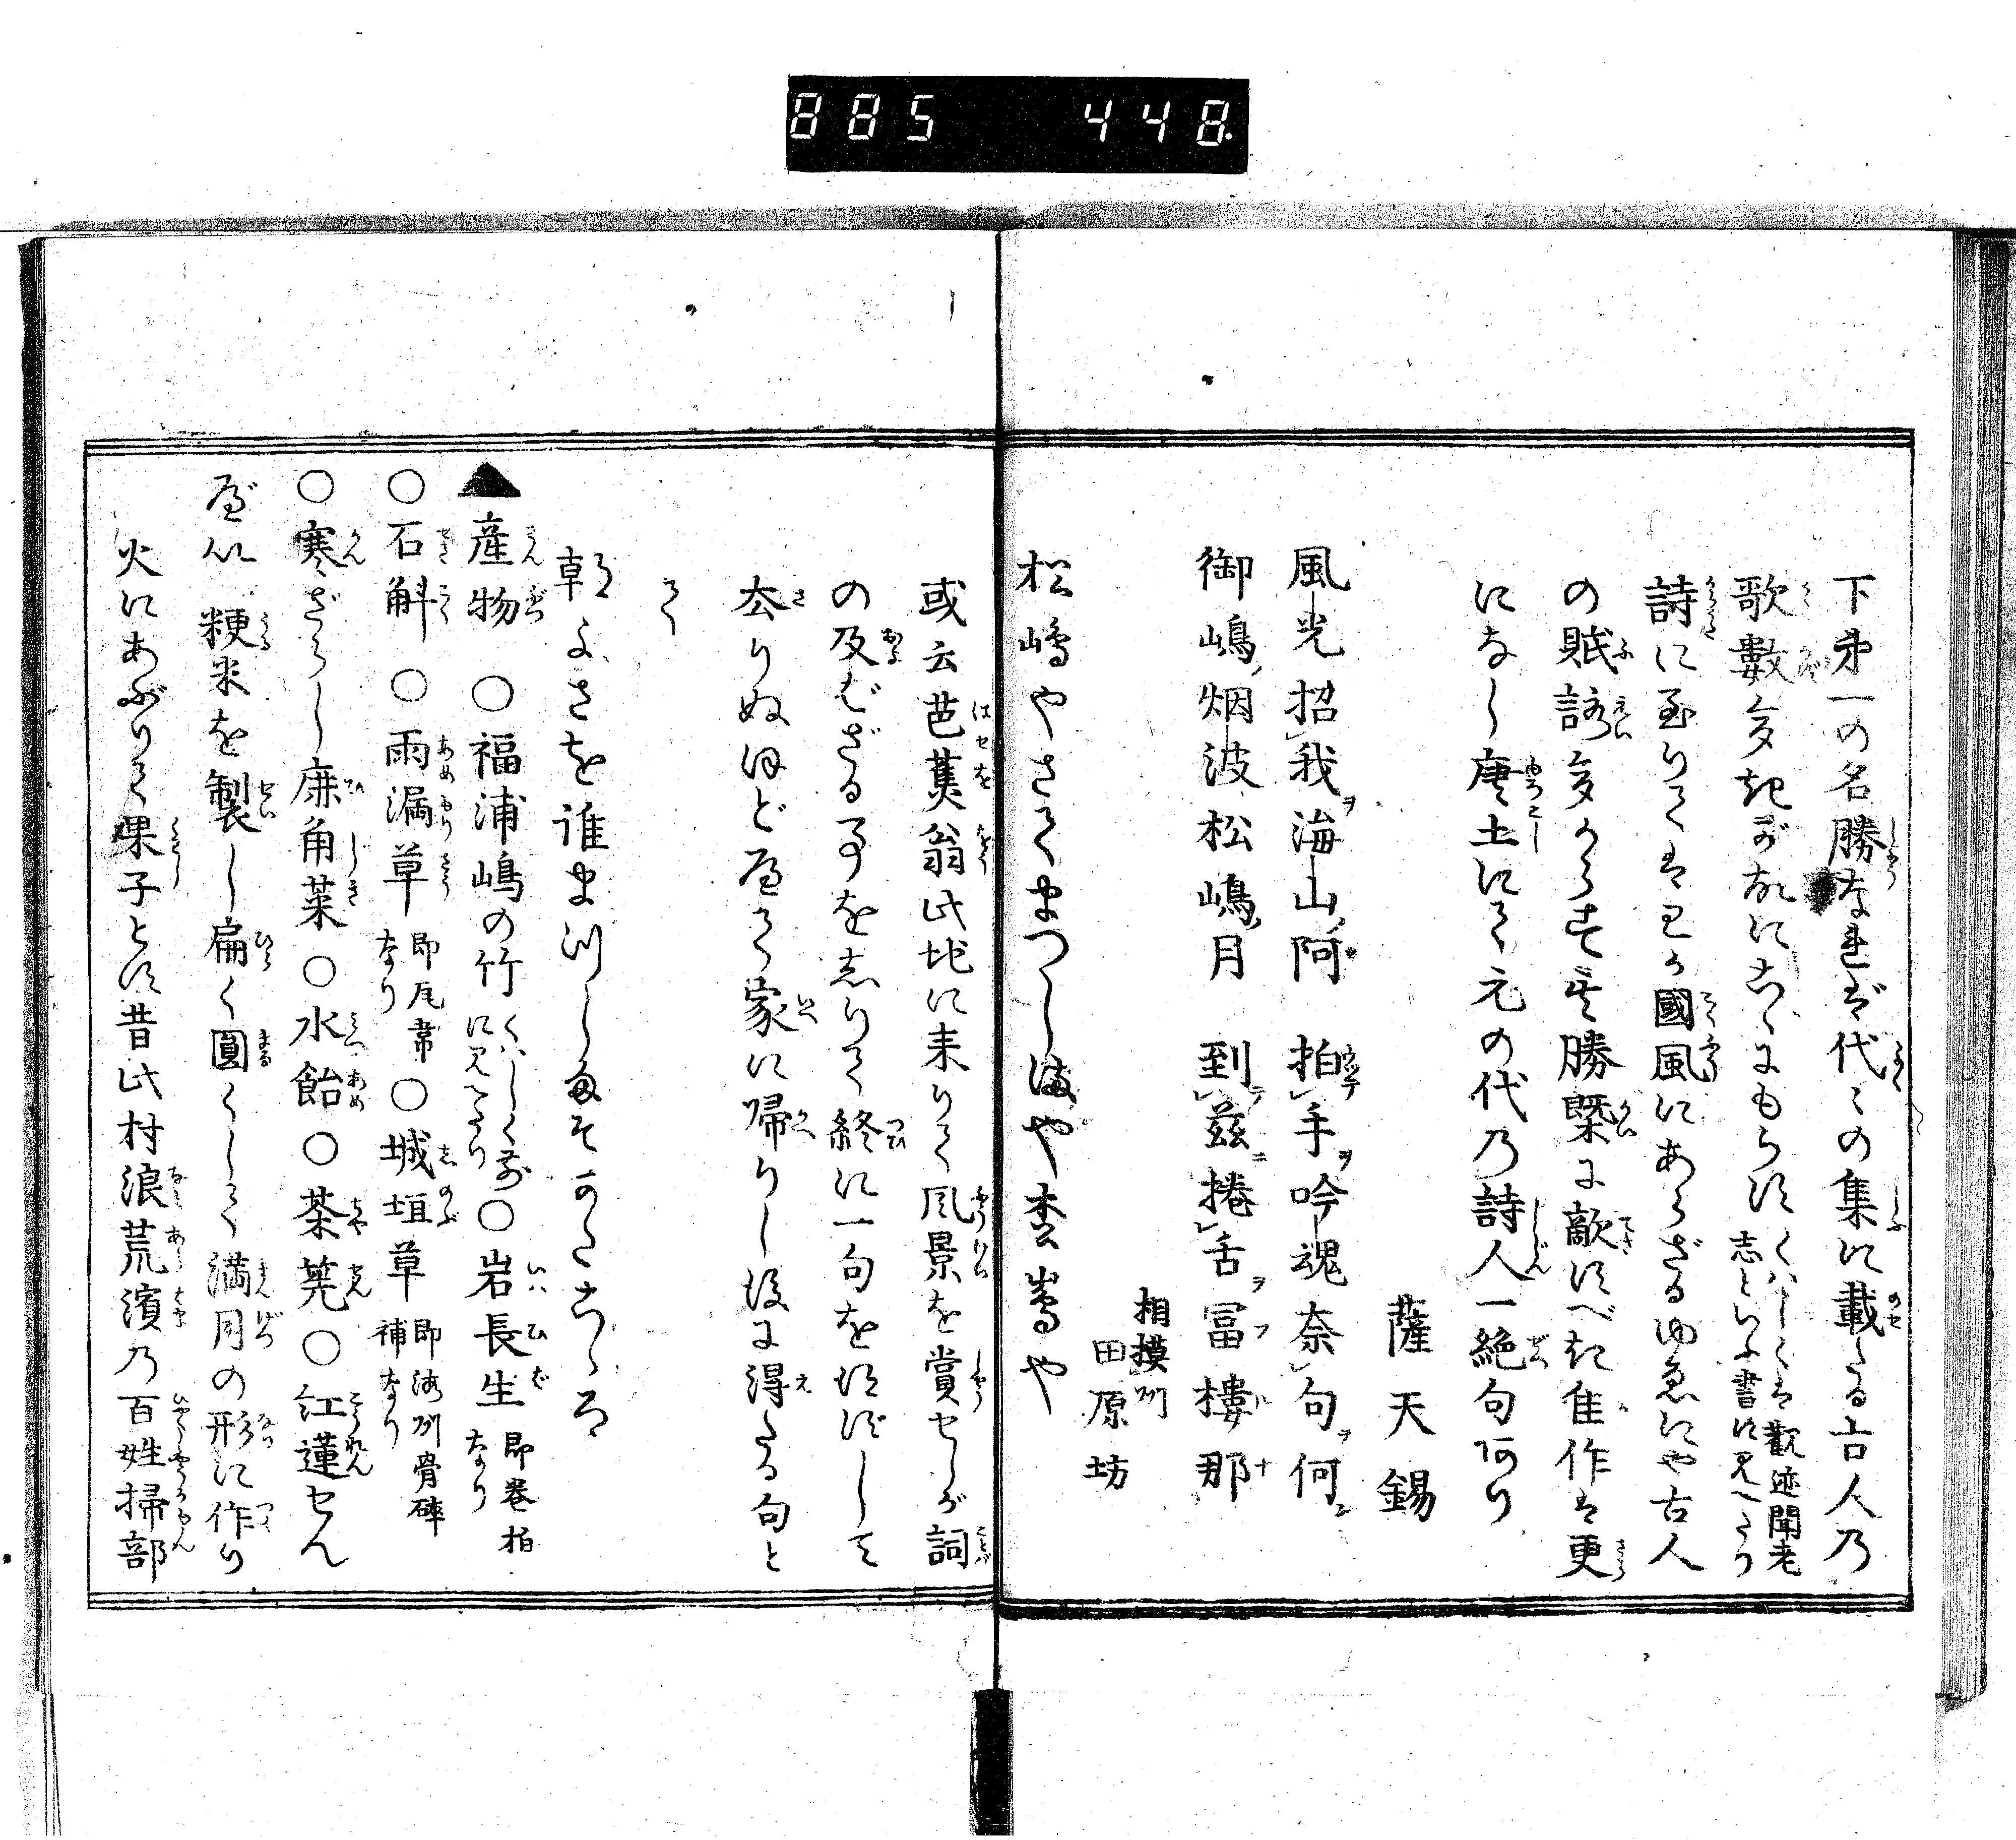 885 448
下第一の名勝なれば代〻の集に載たる古人乃
歌數多きが故にこゝにもらす くはしくは觀迹聞老
志といふ書に見へたり
詩に至りては己が國風にあらざるゆゑにや古人
の賦詠多からず其勝槩に敵すべき佳作は更
になし唐土にて元の代乃詩人一絶句あり
薩天錫
風光招我海山阿 拍手吟魂奈句何
御嶋烟波松嶋月 到茲捲舌冨樓那
相摸州
田原坊
松嶋やさてまつしまや松嶋や
或云芭蕉翁此地に来りて風景を賞せしが詞
の及ばざる事を志りて終に一句を残ずして
去りぬほど歴て家に帰りし後に得たる句と
て
朝よさを誰まつしまぞかたこゝろ
▲産物 ○福浦嶋の竹 くはしく前
に見へたり ○岩長生 即巻柏
なり
○石斛 ○雨漏草 即瓦韋
なり ○城垣草 即海州骨碎
補なり
○寒ざらし鹿角菜 ○水飴 ○茶筅 ○紅蓮せん
べい 粳米を製し扁く圓くして満月の形に作り
火にあぶりて果子とす昔此村浪荒濱乃百姓掃部